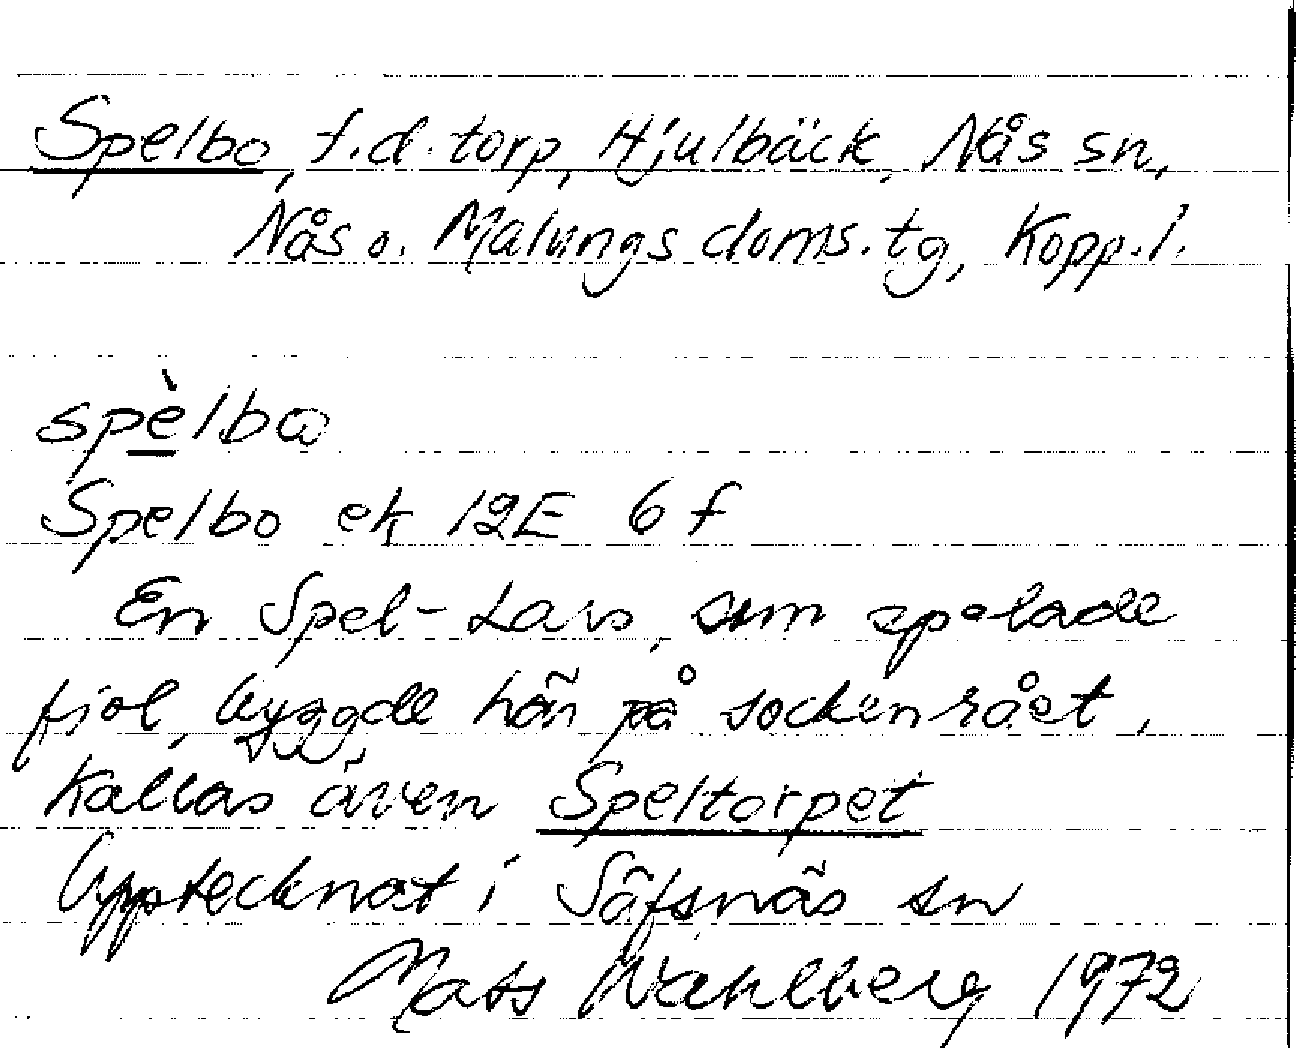 Spelbo, f.d. torp, Hjulbäck, Nås sn,
Nås o. Malungs doms.tg, Kopp.l.
spèlbω
Spelbo ek 12E 6f
En Spel-Lars, som spelade
fiol, byggde här på sockenrået,
Kallas även Speltorpet
Upptecknat i Säfsnäs sn
Mats Wahlberg 1972